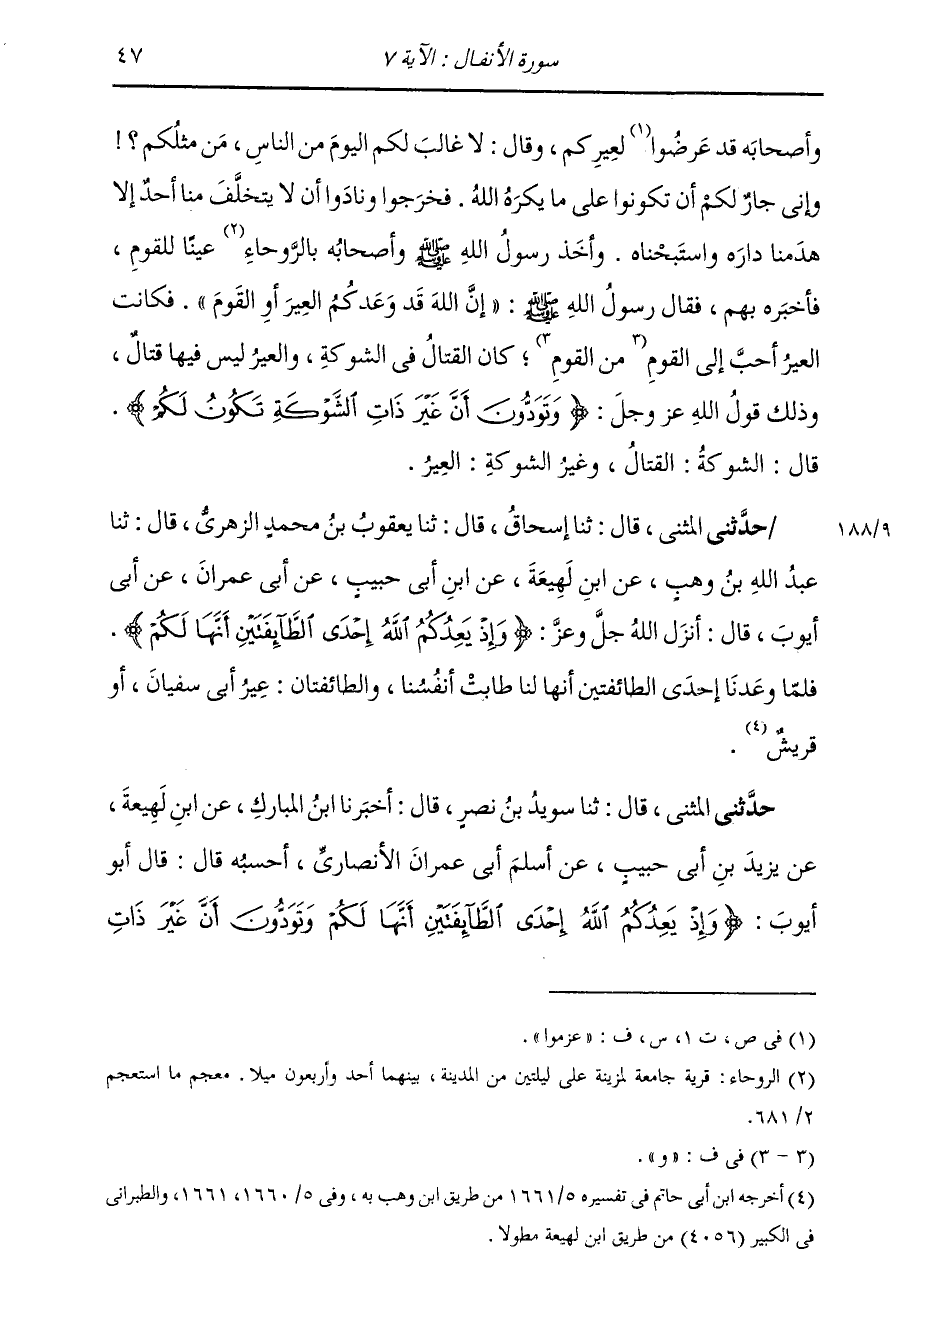 سورة الأنفال : الآية ٧
٤٧
وأصحابَه قد عَرضُوا(١) لعِيرِكم ، وقال : لا غالبَ لكم اليومَ من الناسِ ، مَن مثلُكم ؟ !
وإنى جارٌ لكمْ أن تكونوا على ما يكرَهُ اللهُ . فخرَجوا ونادَوا أن لا يتخلَّفَ منا أحدٌ إلا
هدَمنا دارَه واستَبحْناه . وأخَذ رسولُ اللهِ ﷺ وأصحابُه بالرَّوحاءِ(٢) عينًا للقومِ ،
فأخبَره بهم ، فقال رسولُ اللهِ ﷺ : « إنَّ اللهَ قد وَعَدكُمُ العِيرَ أو القَومَ » . فكانت
العيرُ أحبَّ إلى القومِ (٣ من القومِ ٣) ؛ كان القتالُ فى الشوكةِ ، والعيرُ ليس فيها قتالٌ ،
وذلك قولُ اللهِ عز وجلَ : ﴿ وَتَوَدُّونَ أَنَّ غَيْرَ ذَاتِ ٱلشَّوْكَةِ تَكُونُ لَكُمْ ﴾ .
قال : الشوكةُ : القتالُ ، وغيرُ الشوكةِ : العِيرُ .
١٨٨/٩
/حدَّثنى المثنى ، قال : ثنا إسحاقُ ، قال : ثنا يعقوبُ بنُ محمدٍ الزهرىُّ ، قال : ثنا
عبدُ اللهِ بنُ وهبٍ ، عن ابنِ لَهِيعَةَ ، عن ابنِ أبى حبيبٍ ، عن أبى عمرانَ ، عن أبى
أيوبَ ، قال : أنزَل اللهُ جلَّ وعزَّ : ﴿ وَإِذْ يَعِدُكُمُ ٱللَّهُ إِحْدَى ٱلطَّآئِفَتَيْنِ أَنَّهَا لَكُمْ ﴾ .
فلمّا وعَدنَا إحدَى الطائفتين أنها لنا طابتْ أنفُسُنا ، والطائفتان : عِيرُ أبى سفيانَ ، أو
قريشٌ(٤) .
حدَّثنى المثنى ، قال : ثنا سويدُ بنُ نصرٍ ، قال : أخبَرنا ابنُ المباركِ ، عن ابنِ لَهِيعةَ ،
عن يزيدَ بنِ أبى حبيبٍ ، عن أسلمَ أبى عمرانَ الأنصارىِّ ، أحسبُه قال : قال أبو
أيوبَ : ﴿ وَإِذْ يَعِدُكُمُ ٱللَّهُ إِحْدَى ٱلطَّآئِفَتَيْنِ أَنَّهَا لَكُمْ وَتَوَدُّونَ أَنَّ غَيْرَ ذَاتِ
(١) فى ص ، ت ١، س ، ف : « عزموا» .
(٢) الروحاء : قرية جامعة لمزينة على ليلتين من المدينة ، بينهما أحد وأربعون ميلا . معجم ما استعجم
٢/ ٦٨١.
(٣ - ٣) فى ف : « و» .
(٤) أخرجه ابن أبى حاتم فى تفسيره ١٦٦١/٥ من طريق ابن وهب به ، وفى ٥/ ١٦٦٠، ١٦٦١، والطبرانى
فى الكبير (٤٠٥٦) من طريق ابن لهيعة مطولا .